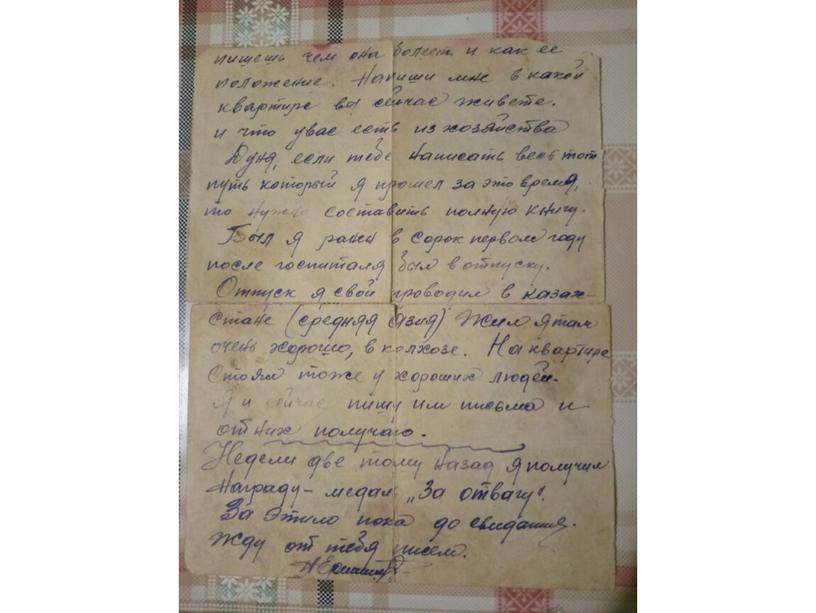 пишешь чем она болеет и как ее
положение. Напиши мне в какой
квартире вы сейчас живете.
и что увас есть из хозяйства
Дуня, если тебе написать весь тот
путь который я прошел за это время,
то нужно составить полную книгу.
Был я ранен в сорок первом году
после госпиталя был в отпуску.
Отпуск я свой проводил в казах-
стане (средняя азия) Жил я там
очень хорошо, в колхозе. На квартире
стоял тоже у хороших людей.
Я и сейчас пишу им письма и
от них получаю.
Недели две тому назад я получил
Награду - медаль „За отвагу".
За этим пока до свидания.
Жду от тебя писем.